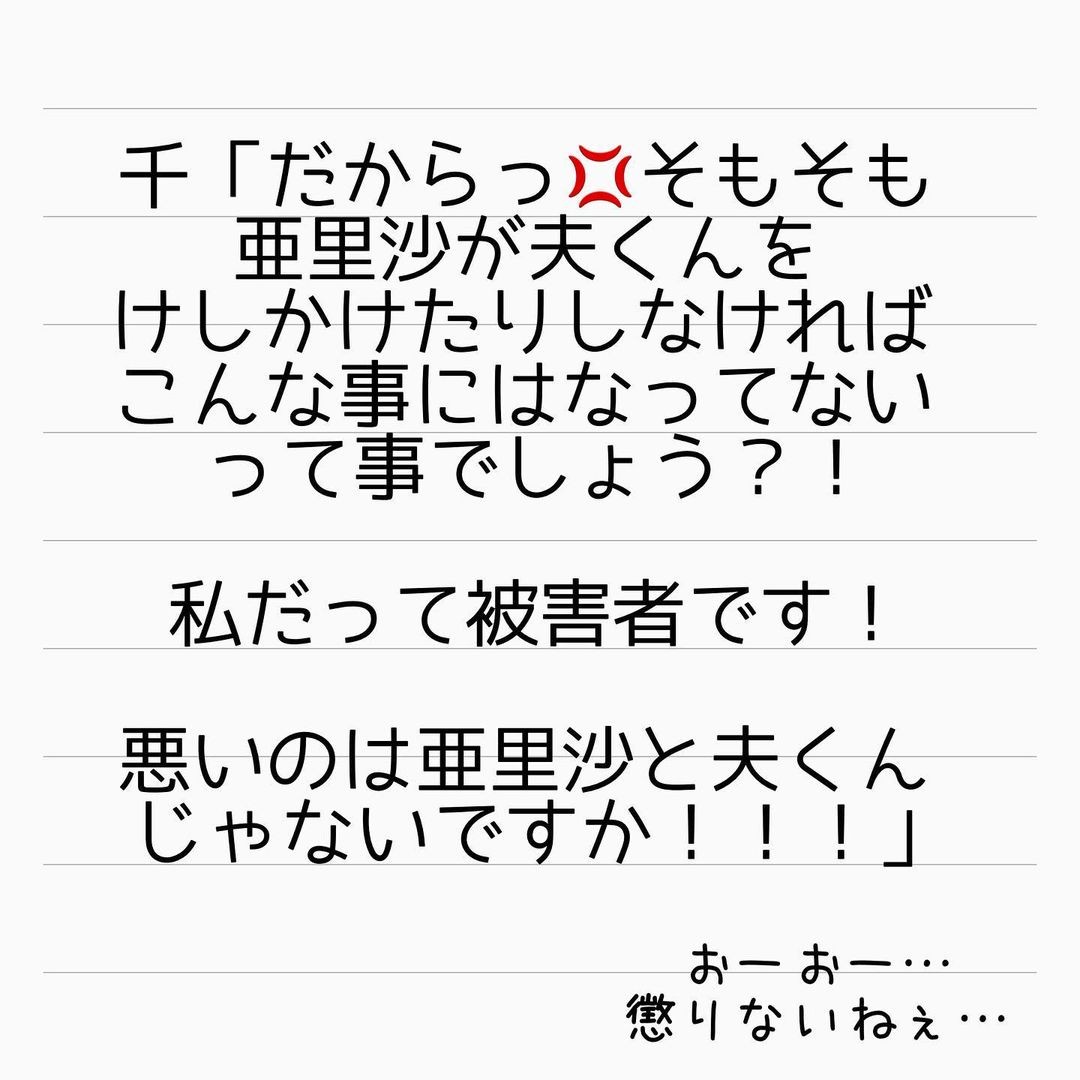 千「だからっ💢そもそも
亜里沙が夫くんを
けしかけたりしなければ
こんな事にはなってない
って事でしょう？！
私だって被害者です！
悪いのは亜里沙と夫くん
じゃないですか！！！」
おー おー…
懲りないねぇ…